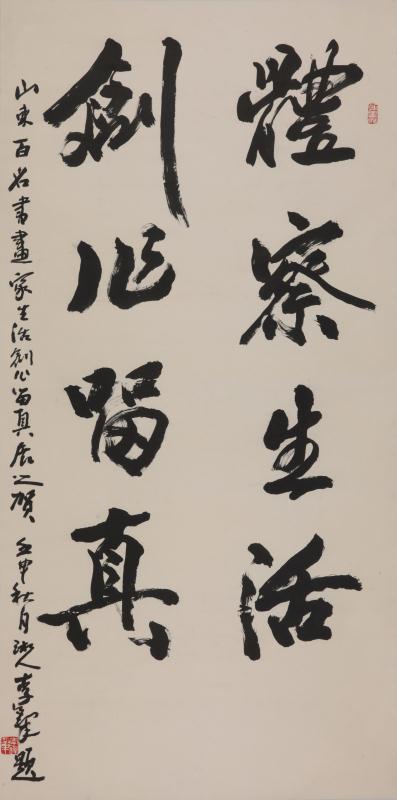 體察生活
創作留真
山東百名書畫家生活創作留真展之賀 壬申秋月 李 題